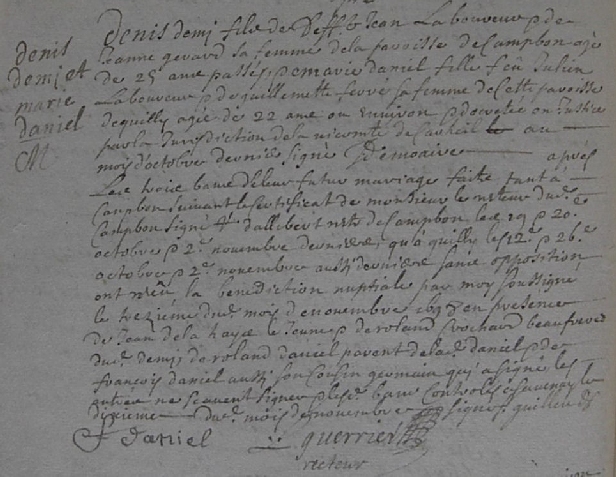 denis
demÿ et
marie
daniel
CM
Denis demÿ fils de deff^t Jean Laboureur p de
Jeanne gerard sa femme de la paroisse de Campbon agé
de 25 ans passés, p marie daniel fille feu Julien
Laboureur p de guillemette ferré sa femme de cette paroisse
de quilly agée de 22 ans ou environ p decretée en Justice
par la Jurisdiction de la vicomté de Carheil au
mois d'octobre dernier signé Demoaire apres
Les trois bans de leur futur mariage faits tant à
Campbon suivant le certificat de monsieur le recteur du^t
Campbon signé d'allibert de Campbon les 19 p 20.^e
octobre p 2.^e novembre derniers, qu'a quilly les 12.^e p 26.^e
octobre p 2.^e novembre aussi derniers sans opposition
ont receu la benediction nuptiale par moy soussigné
le treziéme du^t mois de novembre 1698 en presence
de Jean de la haye le Jeune p de roland Crochard beaufrere
du^t demÿ, de roland daniel parent de lad^e daniel p de
françois daniel aussi son cousin germain qui a signé les
autres ne scavent signer p les^d bans Controlés a savenay le
dixieme du^t mois de novembre signé
F daniel guerrier
recteur